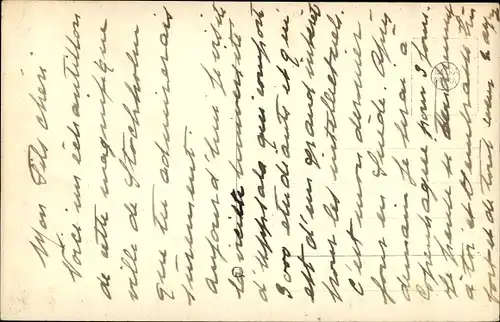 Mon Fils chéri
Voici un échantillon
de cette magnifique
ville de Stockholm
que tu admirerais
sûrement.
Aujourd'hui je visite
la vieille université
d'Uppsala qui comporte
3000 étudiants et qui
est d'un grand intérêt
pour les intellectuels.
C'est mon dernier
jour en Suède. Après
demain je serai à
Copenhague pour 3 jours.
Je pense
à toi et t'embrasse
fort de tout